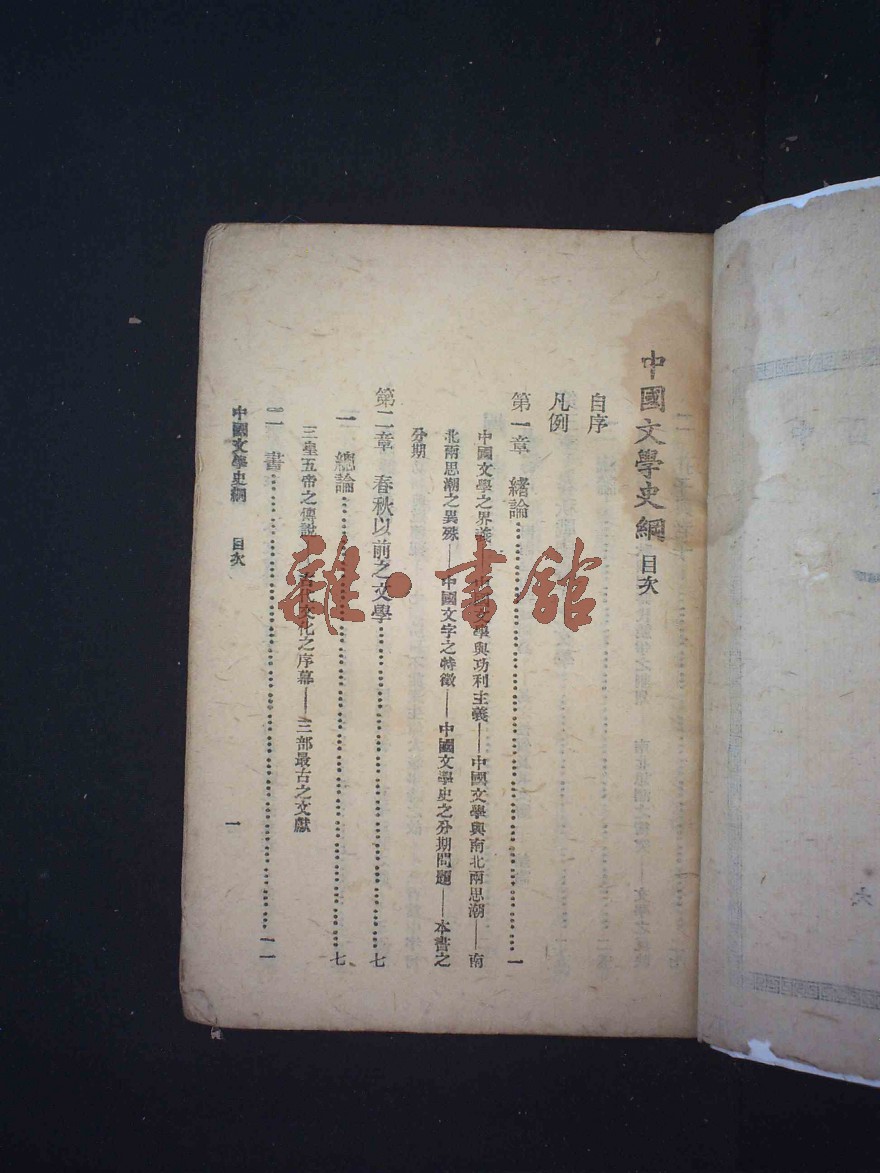 中國文學史綱 目次
自序
凡例
第一章 緒論……一
中國文學之界義——中國文學與功利主義——中國文學與南北兩思潮——南
北兩思潮之異殊——中國文字之特徵——中國文學史之分期問題——本書之
分期
第二章 春秋以前之文學……七
一 總論……七
三皇五帝之傳說——古代文化之序幕——三部最古之文獻
二 書……一一
中國文學史綱 目次
一
雜·書館
六